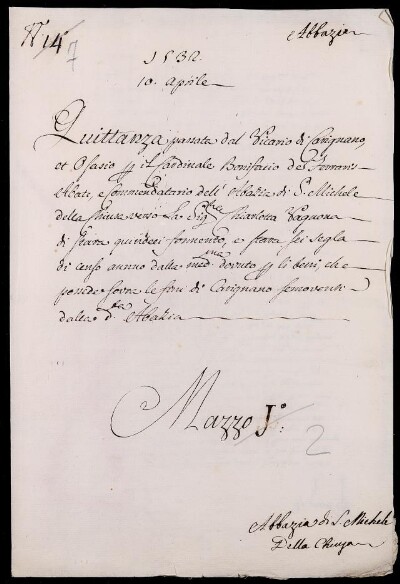 N.º 14
7
Abbazia
1532.
10. Aprile
Quittanza passata dal Vicario di Carignano,
et Osasio pp il Cardinale Bonifacio de Ferreris
Abate, e Commendatario dell' Abadia di S. Michele
della Chiusa verso la Sig.ra Chiarlotta Vagnona
di stara quindeci formento, e stara sei segla
di censo annuo dalla med.ma dovuto pp li beni, che
possede sovra le fini di Carignano semoventi
dalla d.ta Abadia
Mazzo J.º
2
Abbazia di S. Michele
Della Chiusa